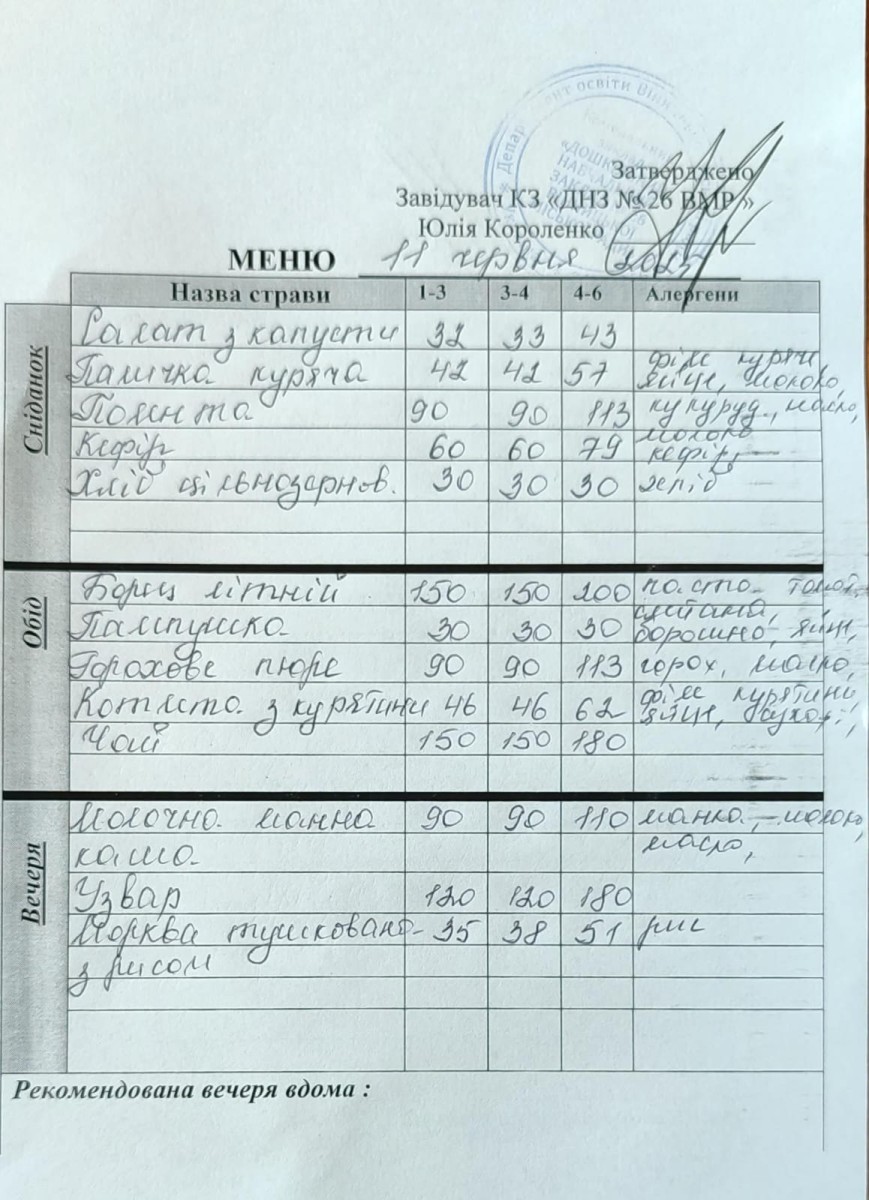 Департамент освіти Вінн
Затверджено
Завідувач КЗ «ДНЗ № 26 ВМР »
Юлія Короленко
МЕНЮ 11 червня 2025
Назва страви 1-3 3-4 4-6 Алергени
Сніданок
Салат з капусти 32 33 43
Паличка куряча 42 42 57 філе куряче, яйце, молоко,
Полента 90 90 113 кукурудз., масло, молоко
Кефір 60 60 79 кефір,
Хліб цільнозернов. 30 30 30 хліб
Обід
Борщ літній 150 150 200 паста томат, сметана,
Пампушка 30 30 30 борошно, яйце,
Горохове пюре 90 90 113 горох, масло,
Котлета з курятини 46 46 62 філе курятини яйце, сухарі,
Чай 150 150 180
Вечеря
Молочна манна 90 90 110 манка, молоко,
каша масло,
Узвар 120 120 180
Морква тушкована 35 38 51 рис
з рисом
Рекомендована вечеря вдома :